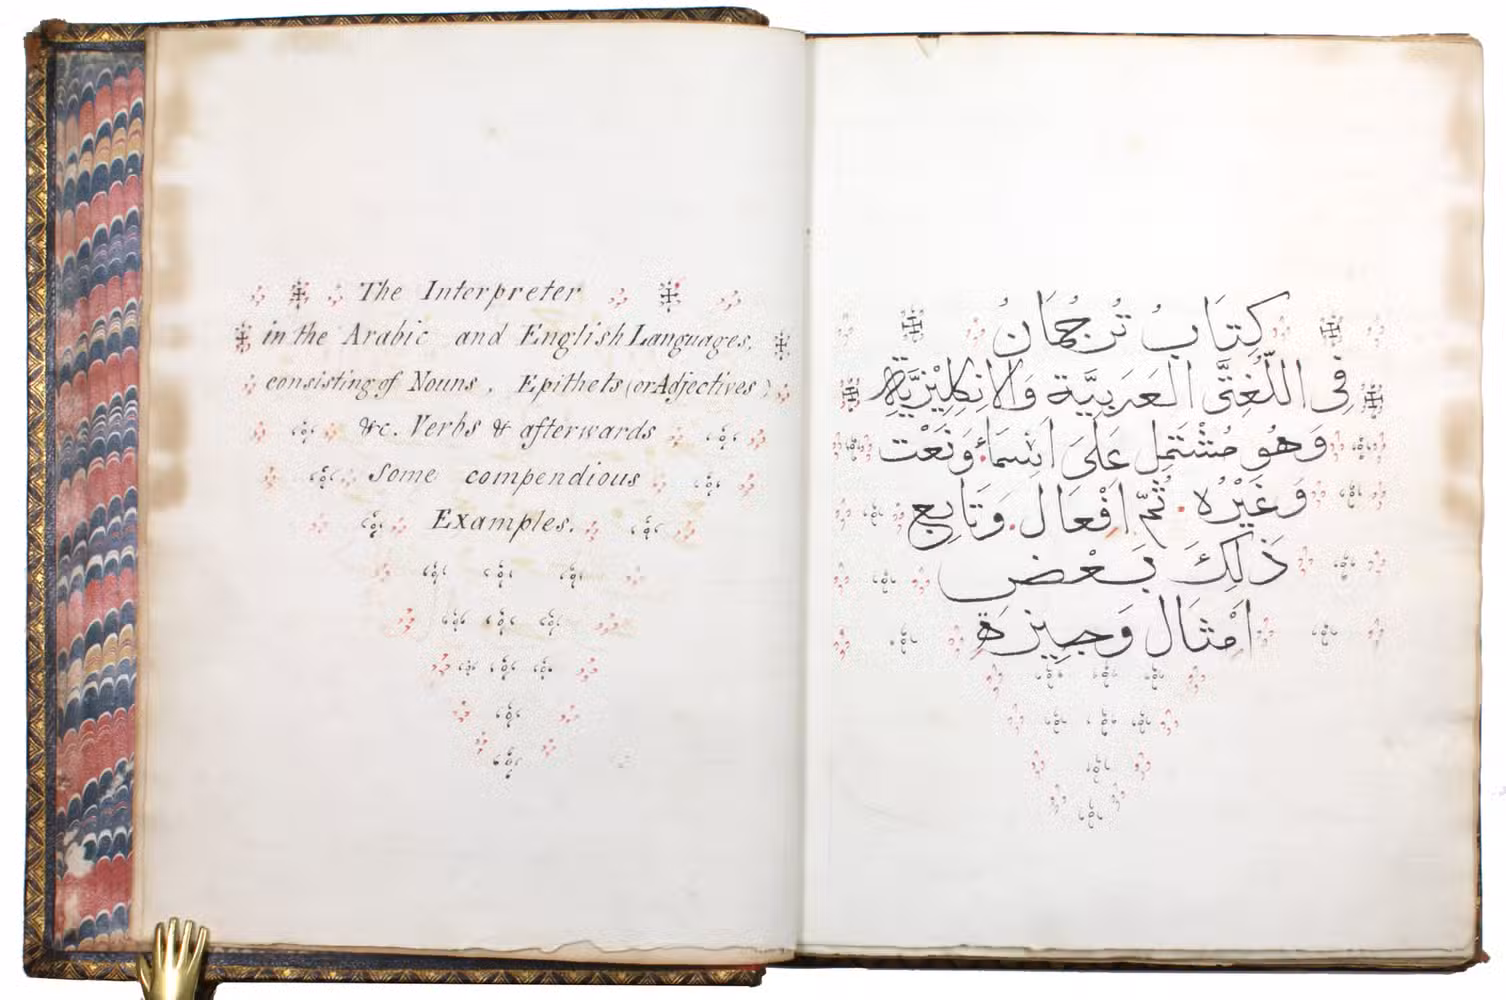 The Interpreter
in the Arabic and English Languages,
consisting of Nouns, Epithets (or Adjectives)
&c. Verbs & afterwards
Some compendious
Examples.
كِتَابُ تُرجُمَانُ
فِى اللّغِتَّى العَرَبِيَّة وَالانكِلِيْزيَّةِ
وَهُو مُشْتَمِل عَلَىَ اَسْمَاءُ وَنَعْت
وَغَيْرُه. ثُمّ اِفْعَال. وَتَابِع
ذَلِكَ بَعْض
اِمْثَال وَجِيزةَ